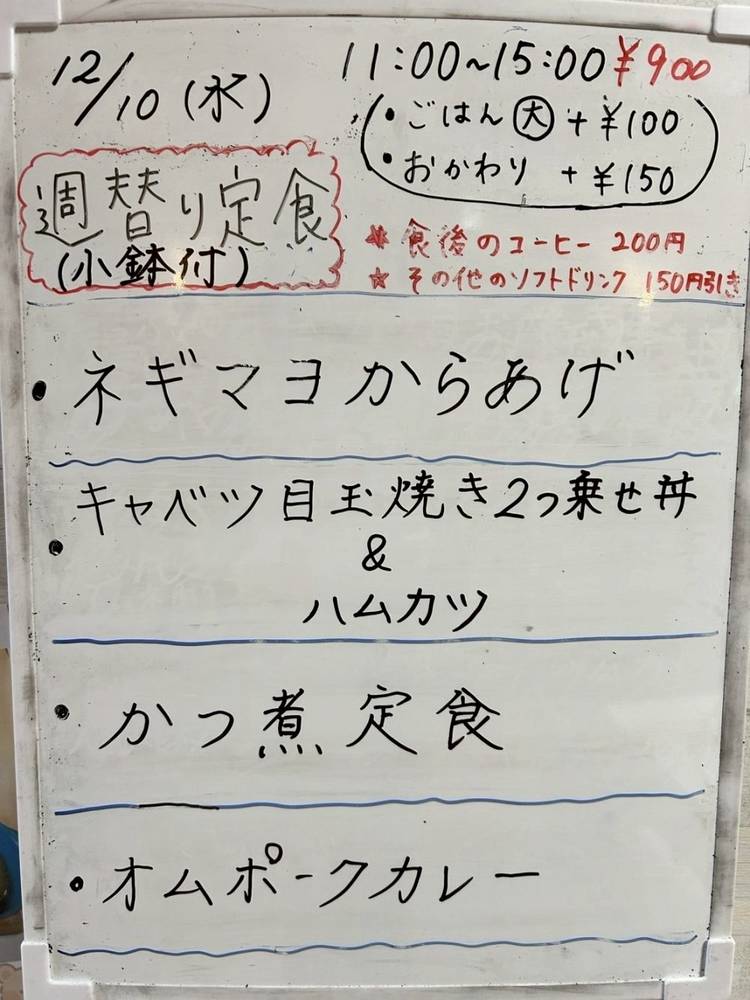 12/10 (水)
11:00~15:00 ¥900
・ごはん㊅ +¥100
・おかわり +¥150
週替り定食
(小鉢付)
★ 食後のコーヒー 200円
★ その他のソフトドリンク 150円引き
・ネギマヨからあげ
・キャベツ目玉焼き2つ乗せ丼
&
ハムカツ
・かつ煮定食
・オムポークカレー